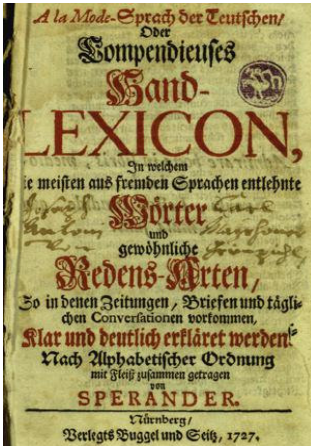 A la Mode-Sprach der Teutschen/
Oder
Compendieuses
Hand-
LEXICON,
In welchem
ie meisten aus fremden Sprachen entlehnte
Wörter
und
gewöhnliche
Redens-Arten,
So in denen Zeitungen, Briefen und tägli-
chen Conversationen vorkommen,
Klar und deutlich erkläret werden.
Nach Alphabetischer Ordnung
mit Fleiß zusammen getragen
von
SPERANDER.
Nürnberg/
Verlegts Buggel und Seitz, 1727.